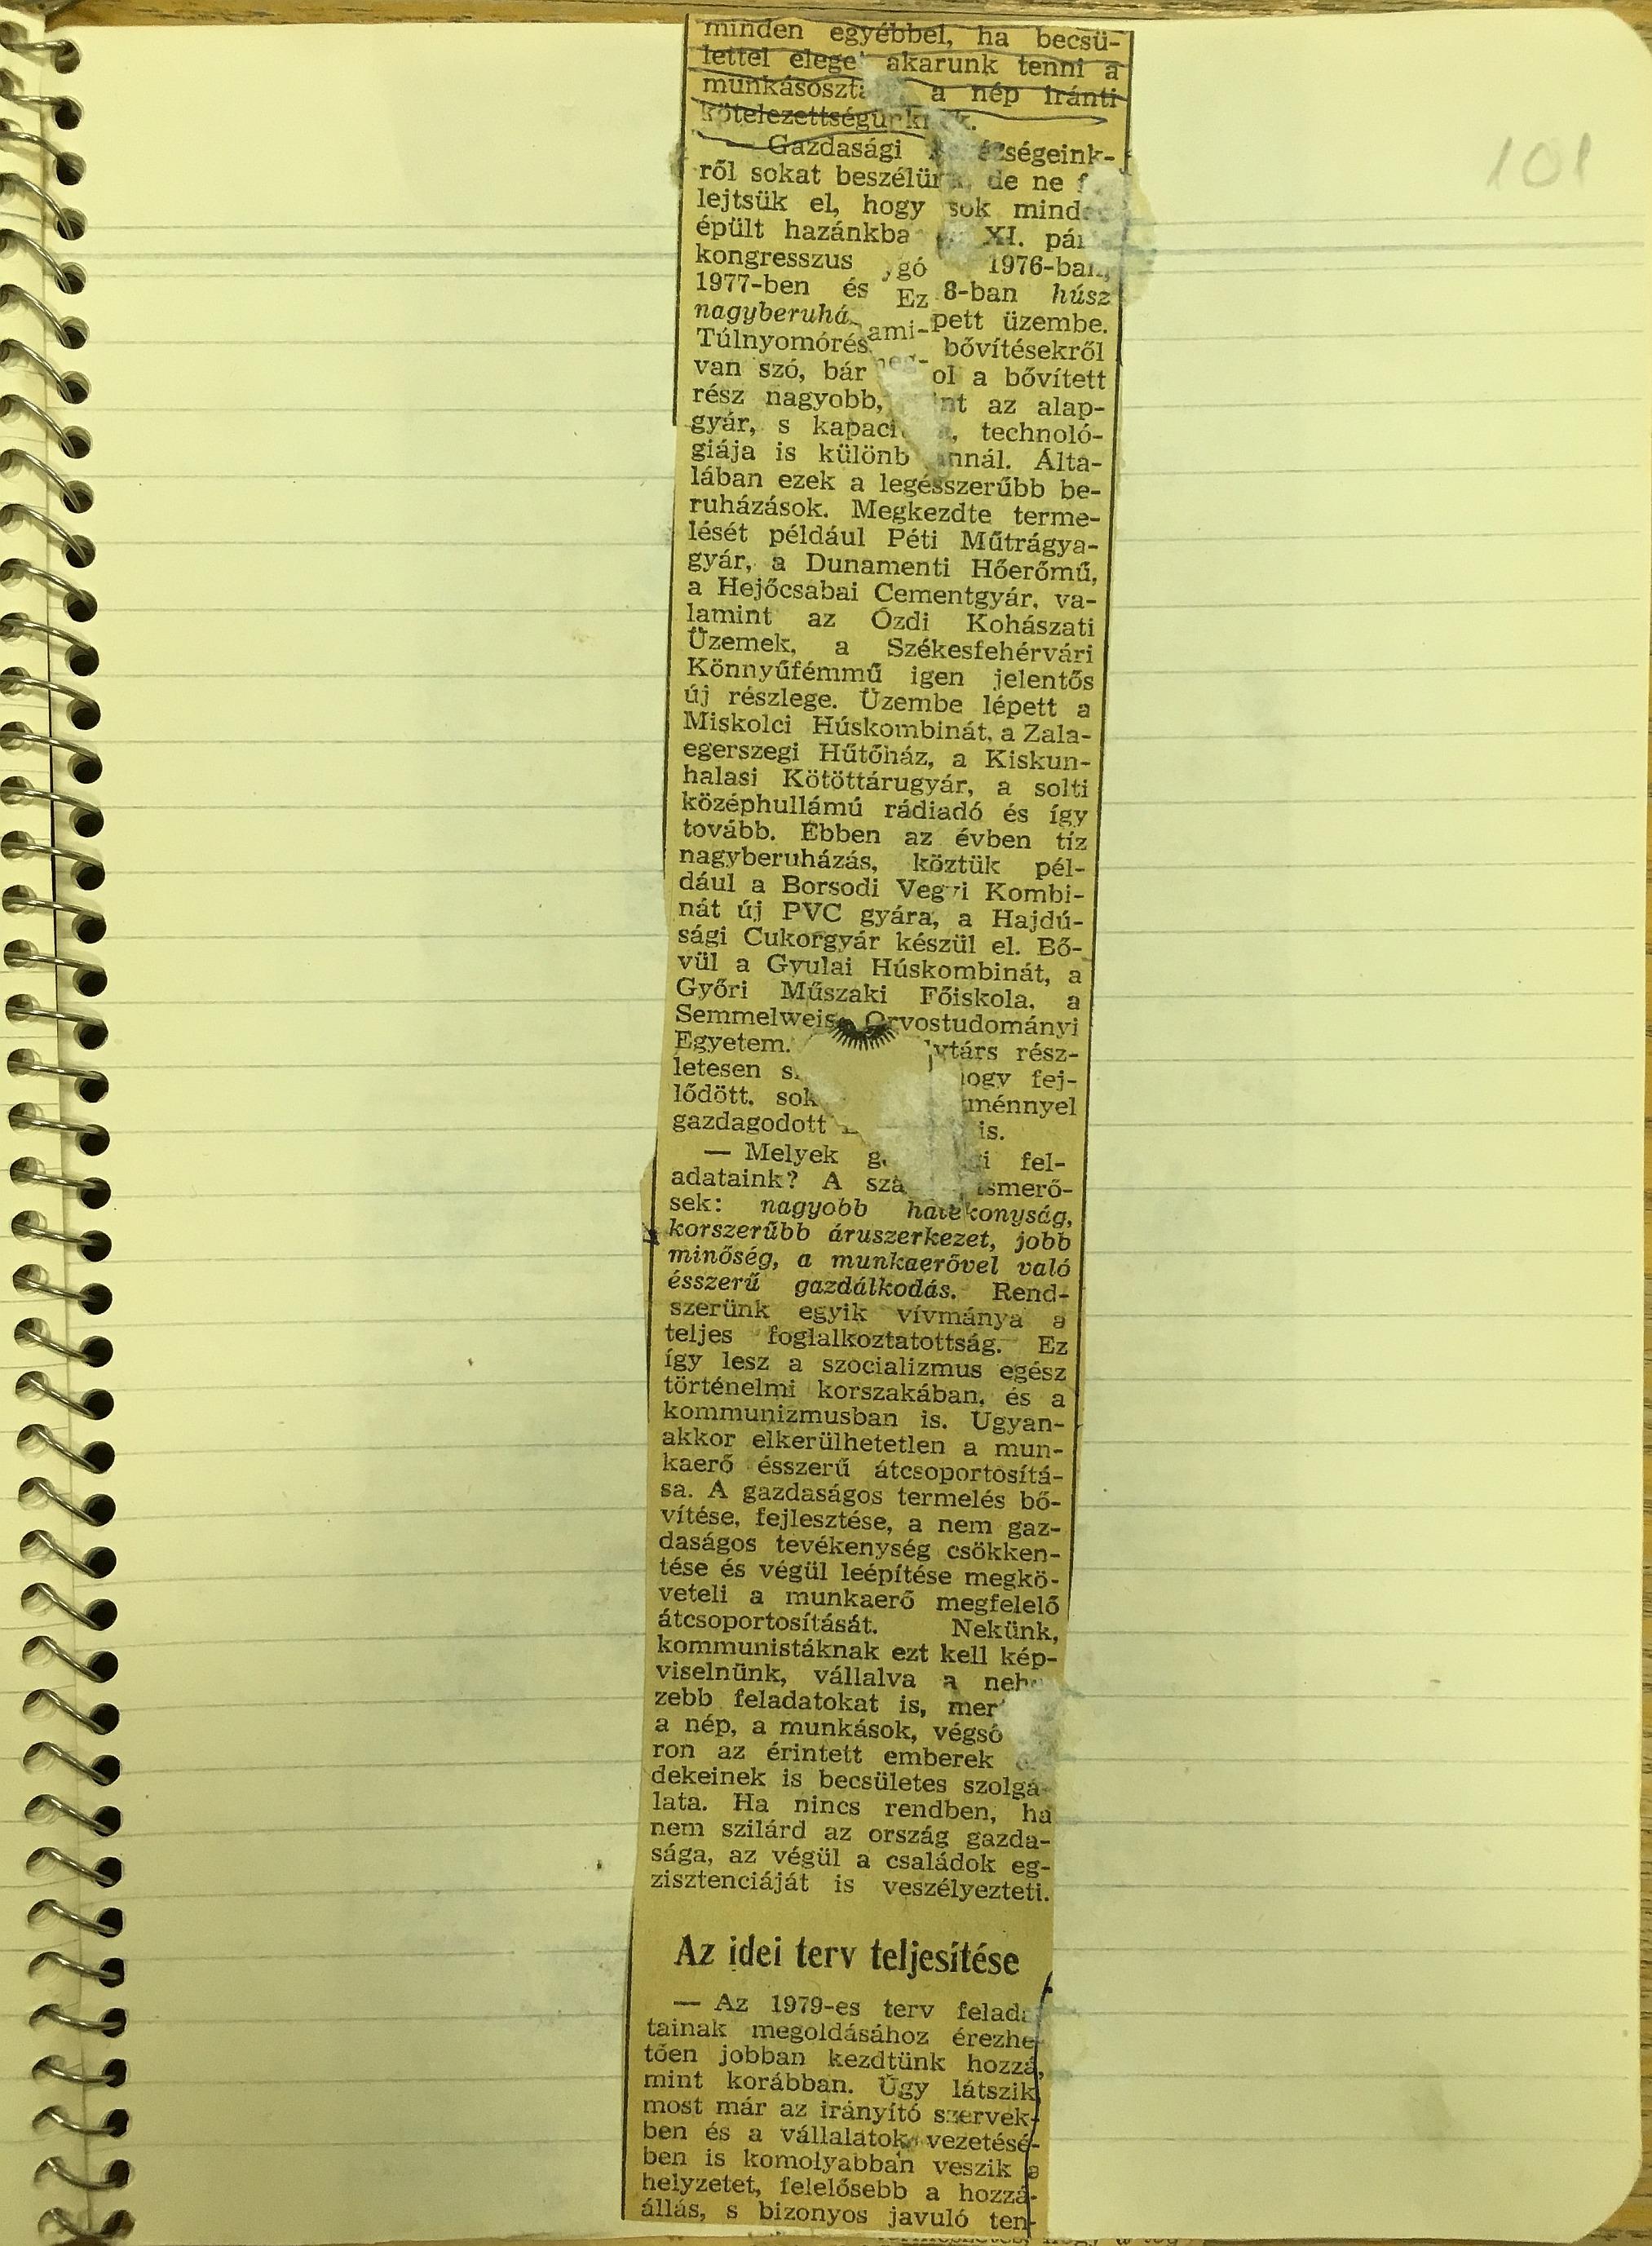 101
minden egyébbel, ha becsü-
lettel akarunk tenni a
a nép iránti
— Gazdasági
ről sokat de ne
lejtsük el, hogy sok
épült XI.
kongresszus 1976-ban,
1977-ben és Ez 8-ban húsz
pett üzembe.
ami- bővítésekről
van szó, bár a bővített
rész nagyobb, az alap-
gyár, s technoló-
giája is különb annál. Álta-
lában ezek a legésszerűbb be-
ruházások. Megkezdte terme-
lését például Péti Műtrágya-
gyár, a Dunamenti Hőerőmű,
a Hejőcsabai Cementgyár, va-
lamint az Ózdi Kohászati
Üzemek, a Székesfehérvári
Könnyűfémmű igen jelentős
új részlege. Üzembe lépett a
Miskolci Húskombinát, a Zala-
egerszegi Hűtőház, a Kiskun-
halasi Kötöttárugyár, a solti
középhullámú rádiadó és így
tovább. Ebben az évben tíz
nagyberuházás, köztük pél-
dául a Borsodi Vegyi Kombi-
nát új PVC gyára, a Hajdú-
sági Cukorgyár készül el. Bő-
vül a Gyulai Húskombinát, a
Győri Műszaki Főiskola, a
Semmelweis Orvostudományi
Egyetem. rész-
letesen fej-
lődött,
gazdagodott is.
— Melyek fel-
adataink? A ismerő-
sek: nagyobb hatékonyság,
korszerűbb áruszerkezet, jobb
minőség, a munkaerővel való
ésszerű gazdálkodás. Rend-
szerünk egyik vívmánya a
teljes foglalkoztatottság. Ez
így lesz a szocializmus egész
történelmi korszakában, és a
kommunizmusban is. Ugyan-
akkor elkerülhetetlen a mun-
kaerő ésszerű átcsoportosítá-
sa. A gazdaságos termelés bő-
vítése, fejlesztése, a nem gaz-
daságos tevékenység csökken-
tése és végül leépítése megkö-
veteli a munkaerő megfelelő
átcsoportosítását. Nekünk,
kommunistáknak ezt kell kép-
viselnünk, vállalva a
zebb feladatokat is,
a nép, a munkások, végső
ron az érintett emberek
dekeinek is becsületes szolgá-
lata. Ha nincs rendben, ha
nem szilárd az ország gazda-
sága, az végül a családok eg-
zisztenciáját is veszélyezteti.
Az idei terv teljesítése
— Az 1979-es terv felada-
tainak megoldásához érezhe-
tően jobban kezdtünk hozzá,
mint korábban. Úgy látszik
most már az irányító szervek-
ben és a vállalatok vezetésé-
ben is komolyabban veszik a
helyzetet, felelősebb a hozzá-
állás, s bizonyos javuló ten-